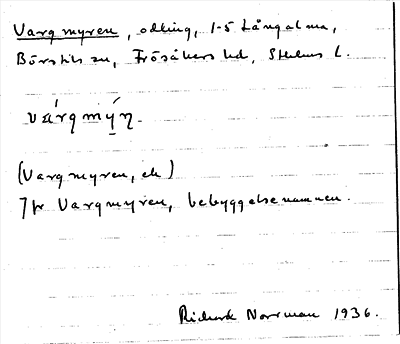 Vargmyren, odling, 1-5 Långalma,
Börstils sn, Frösåkers hd, Sthlms l.
várgmýn.
(Vargmyren, ek)
Jfr Vargmyren, bebyggelsenamnen.
Rickard Norrman 1936.